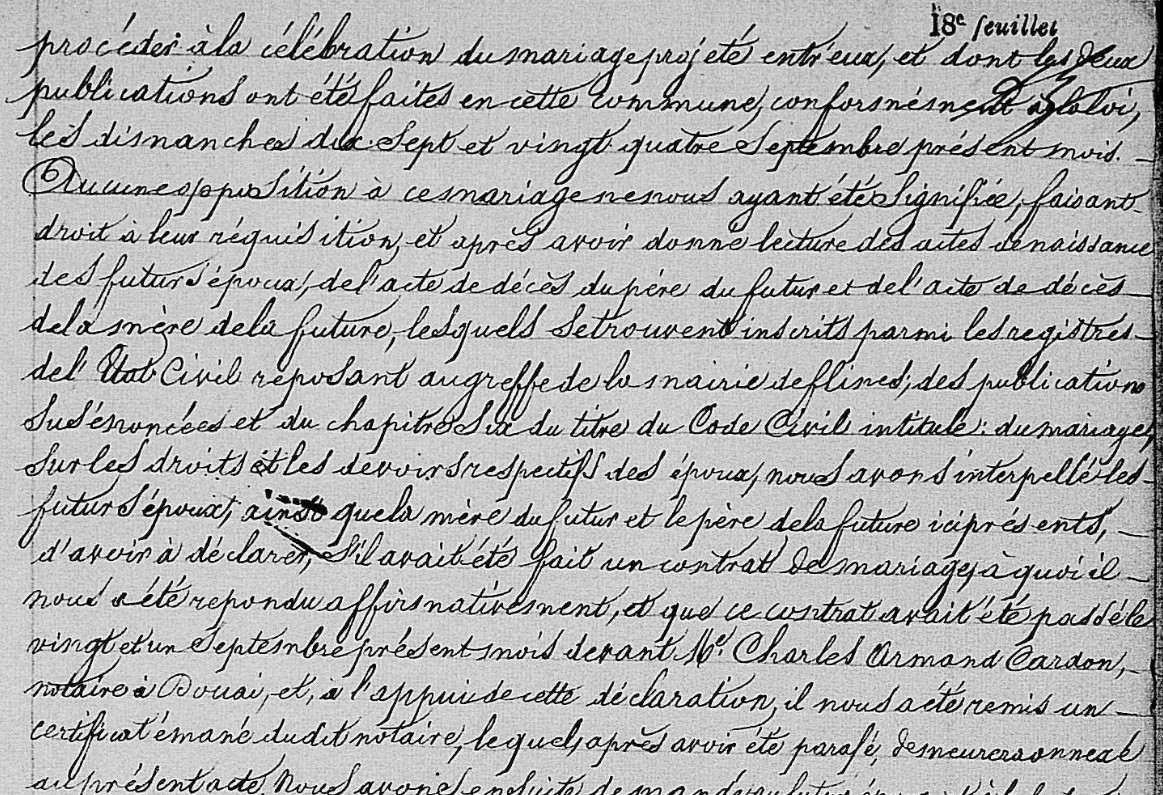 18e feuillet
procéder à la célébration du mariage projeté entr'eux, et dont les deux
publications ont été faites en cette commune, conformément à la loi,
les dimanches dix-sept et vingt quatre Septembre présent mois.
Aucune opposition à ce mariage ne nous ayant été signifiée, faisant
droit à leur réquisition, et après avoir donné lecture des actes de naissance
des futurs époux, de l'acte de décès du père du futur et de l'acte de décès
de la mère de la future, lesquels se trouvent inscrits parmi les registres
de l'Etat Civil reposant au greffe de la mairie de flines, des publications
susénoncées et du chapitre Six du titre du Code Civil intitulé : du mariage,
sur les droits et les devoirs respectifs des époux, nous avons interpellé les
futurs époux, ainsi que la mère du futur et le père de la future ici présents,
d'avoir à déclarer, s'il avait été fait un contrat de mariage, à quoi il
nous a été repondu affirmativement, et que ce contrat avait été passé le
vingt et un Septembre présent mois devant Me Charles Armand Cardon,
notaire à Douai, et, à l'appui de cette déclaration, il nous a été remis un
certificat émané dudit notaire, lequel, après avoir été parafé, demeurera annexé
au présent acte. Nous avons ensuite demandé au futur